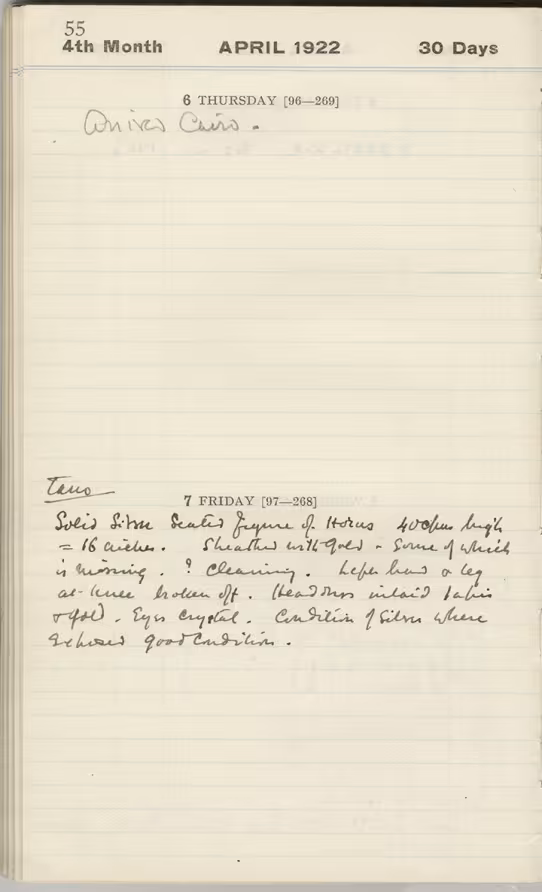 55
4th Month APRIL 1922 30 Days
6 THURSDAY [96—269]
Arrived Cairo.
Tano
7 FRIDAY [97—268]
Solid Silver Seated figure of Horus 40 cms high
= 16 inches. Sheathed with gold - Some of which
is missing. ? Cleaning. Left hand & leg
at knee broken off. Headdress inlaid lapis
& gold. Eyes crystal. Condition of Silver where
exposed good Condition.